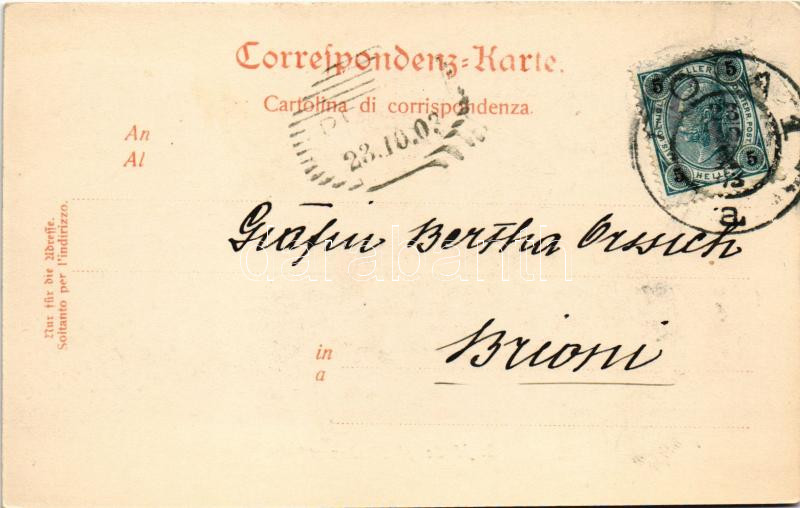 Correspondenz-Karte.
Cartolina di corrispondenza.
23.10.03
5 5
5 5
HELLER
An
Al
Gräfin Bertha Orssich
darabanth
Nur für die Adresse.
Soltanto per l'indirizzo.
in
a
Brioni